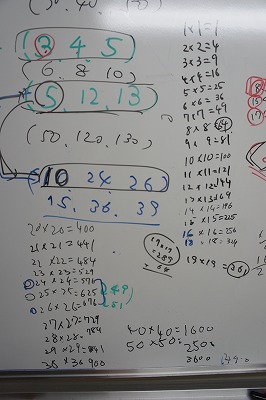 (30, 40, 50)
(3, 4, 5)
(6, 8, 10)
(5, 12, 13)
(50, 120, 130)
10 24 26
15, 36, 39
20×20=400
21×21=441
22×22=484
23×23=529
24×24=576
25×25=625
26×26=676
(49)
(51)
27×27=729
28×28=784
29×29=841
30×30 900
1×1=1
2×2=4
3×3=9
4×4=16
5×5=25
6×6=36
7×7=49
8×8=64
9×9=81
10×10=100
11×11=121
12×12=144
13×13=169
14×14=196
15×15=225
16×16=256
17×17
=289
18×18=324
19×19=361
40×40=1600
50×50=
2500
3600